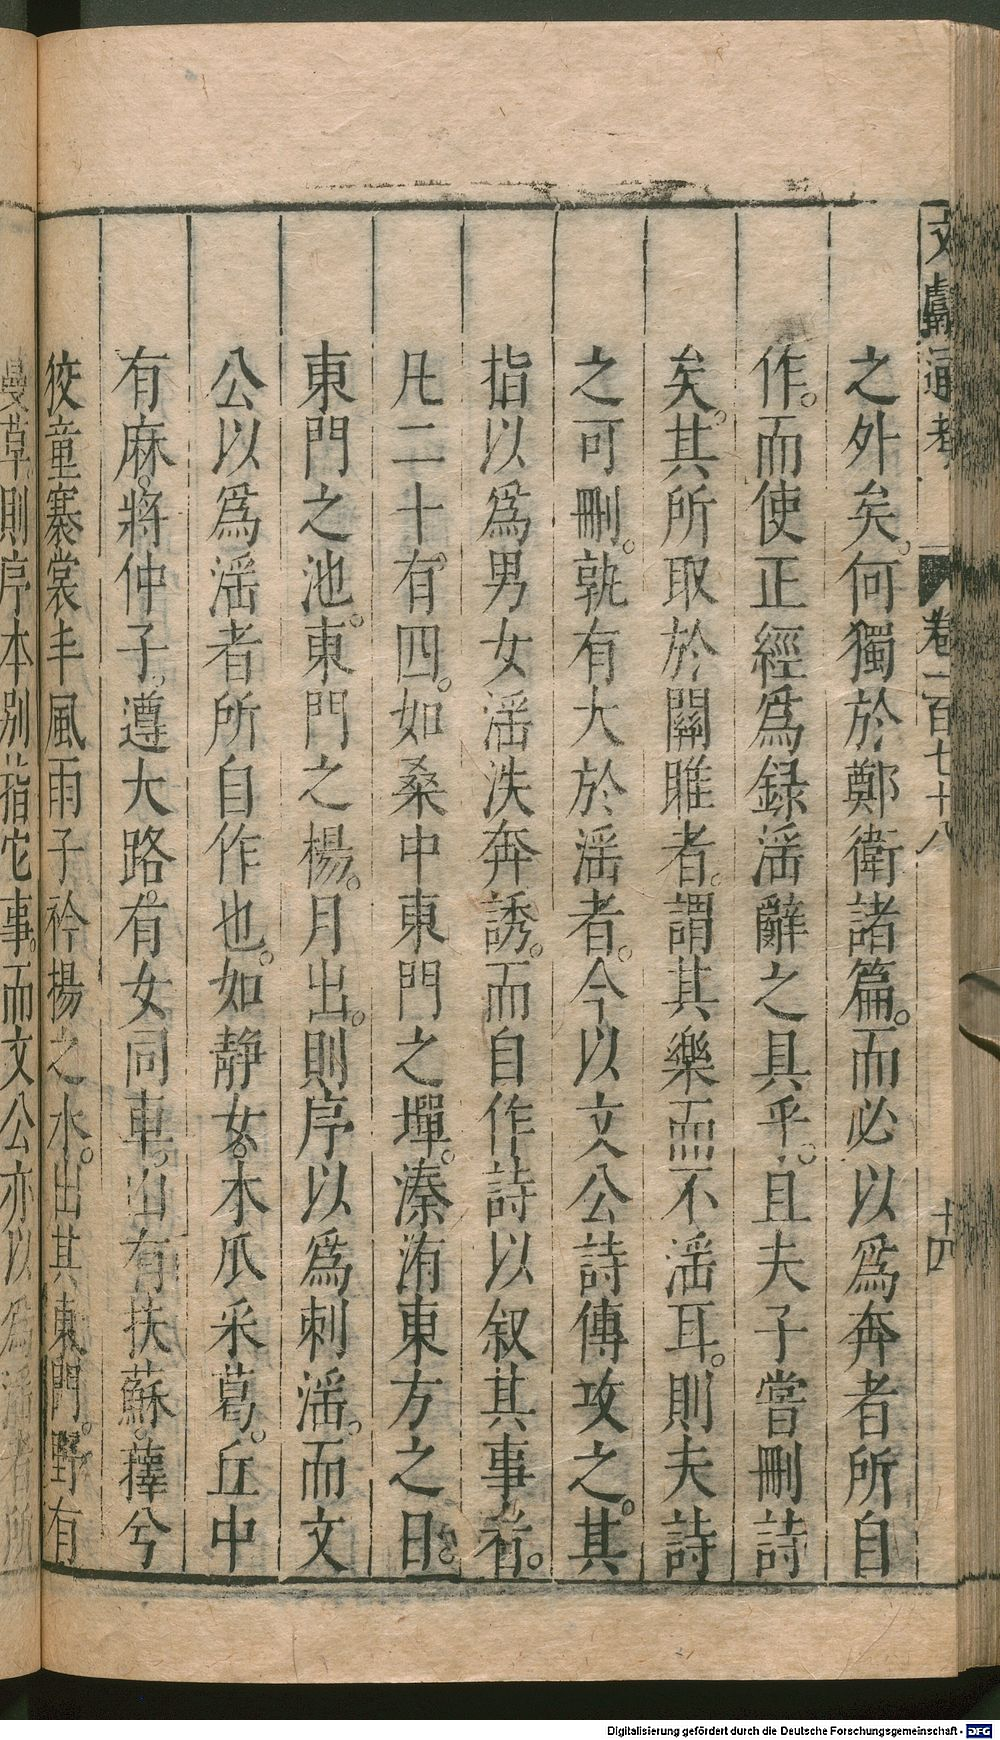 文獻通考 卷一百七十八 十四
之外矣。何獨於鄭衛諸篇。而必以爲奔者所自
作。而使正經爲録淫辭之具乎。且夫子嘗刪詩
矣。其所取於關雎者。謂其樂而不淫耳。則夫詩
之可刪。孰有大於淫者。今以文公詩傳攷之。其
指以爲男女淫泆奔誘。而自作詩以叙其事者。
凡二十有四。如桑中東門之墠。溱洧東方之日。
東門之池。東門之楊。月出。則序以爲刺淫。而文
公以爲淫者所自作也。如静女。木瓜采葛。丘中
有麻。將仲子。遵大路。有女同車。山有扶蘇。蘀兮
狡童褰裳丰風雨子衿揚之水。出其東門。野有
蔓草。則序本別指它事。而文公亦以爲淫者所
Digitalisierung gefördert durch die Deutsche Forschungsgemeinschaft - DFG